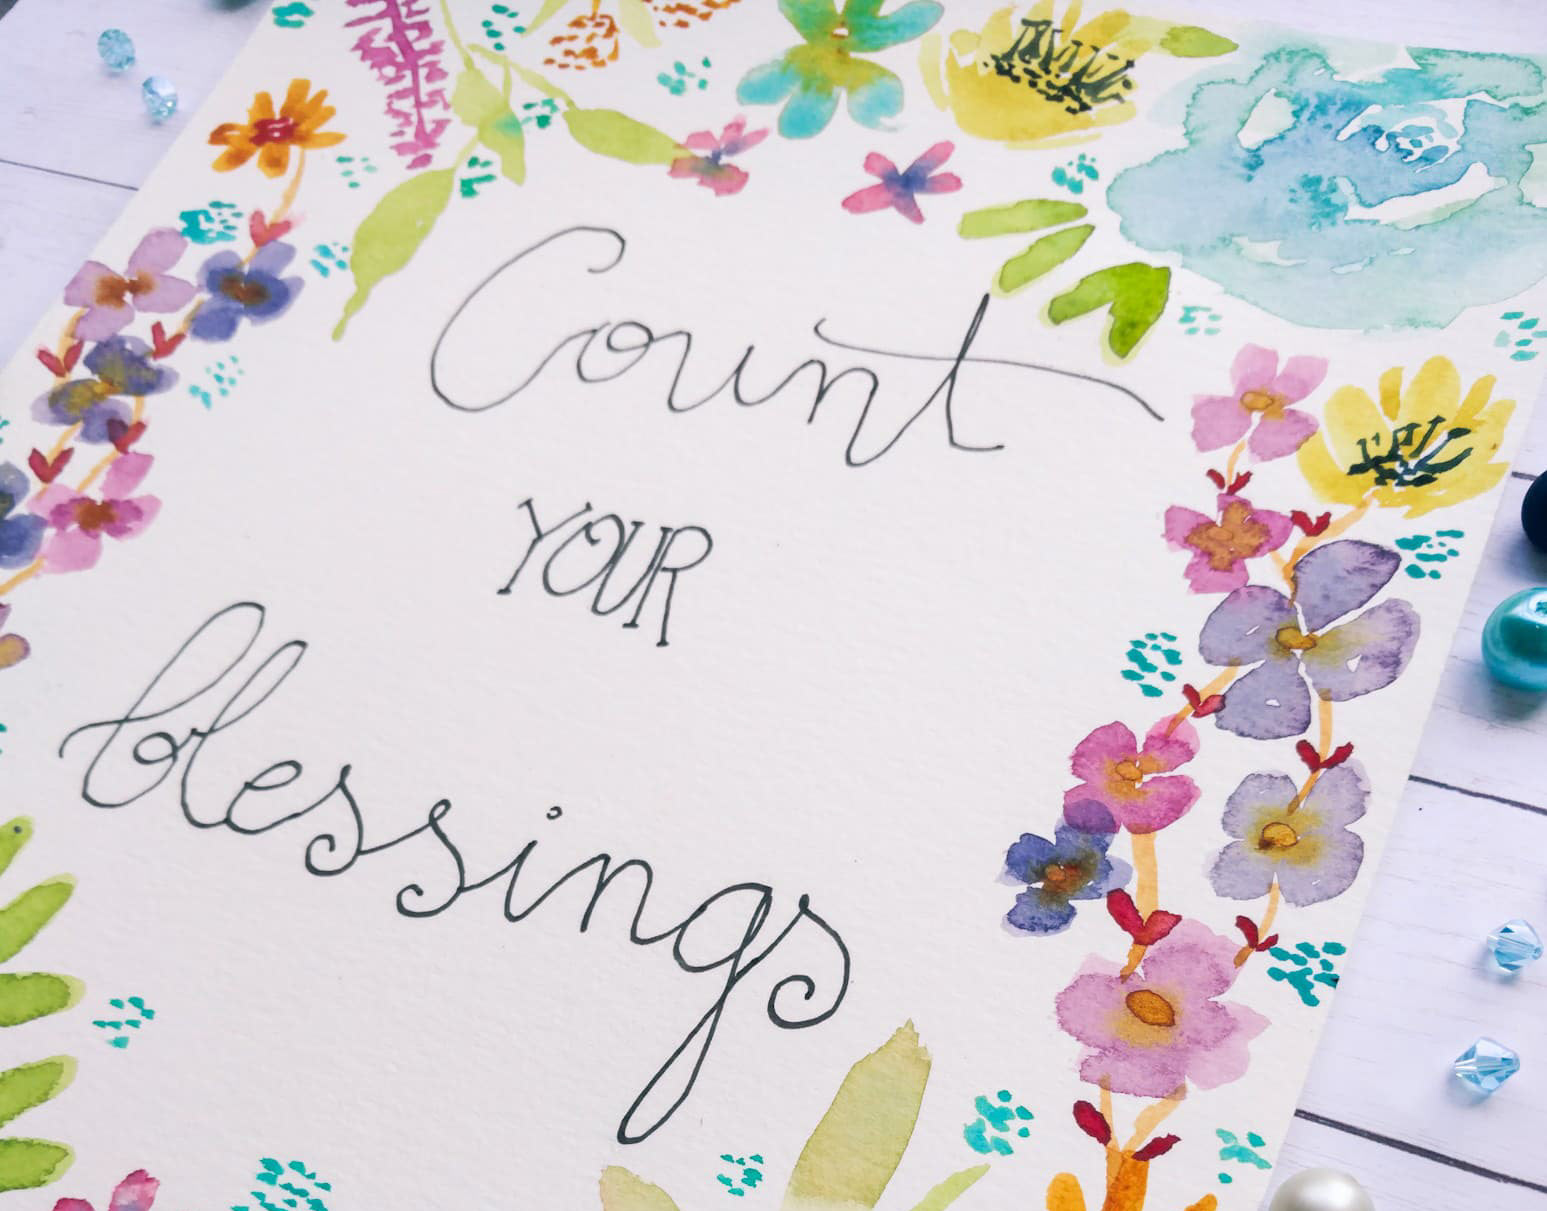 Count
YOUR
blessings